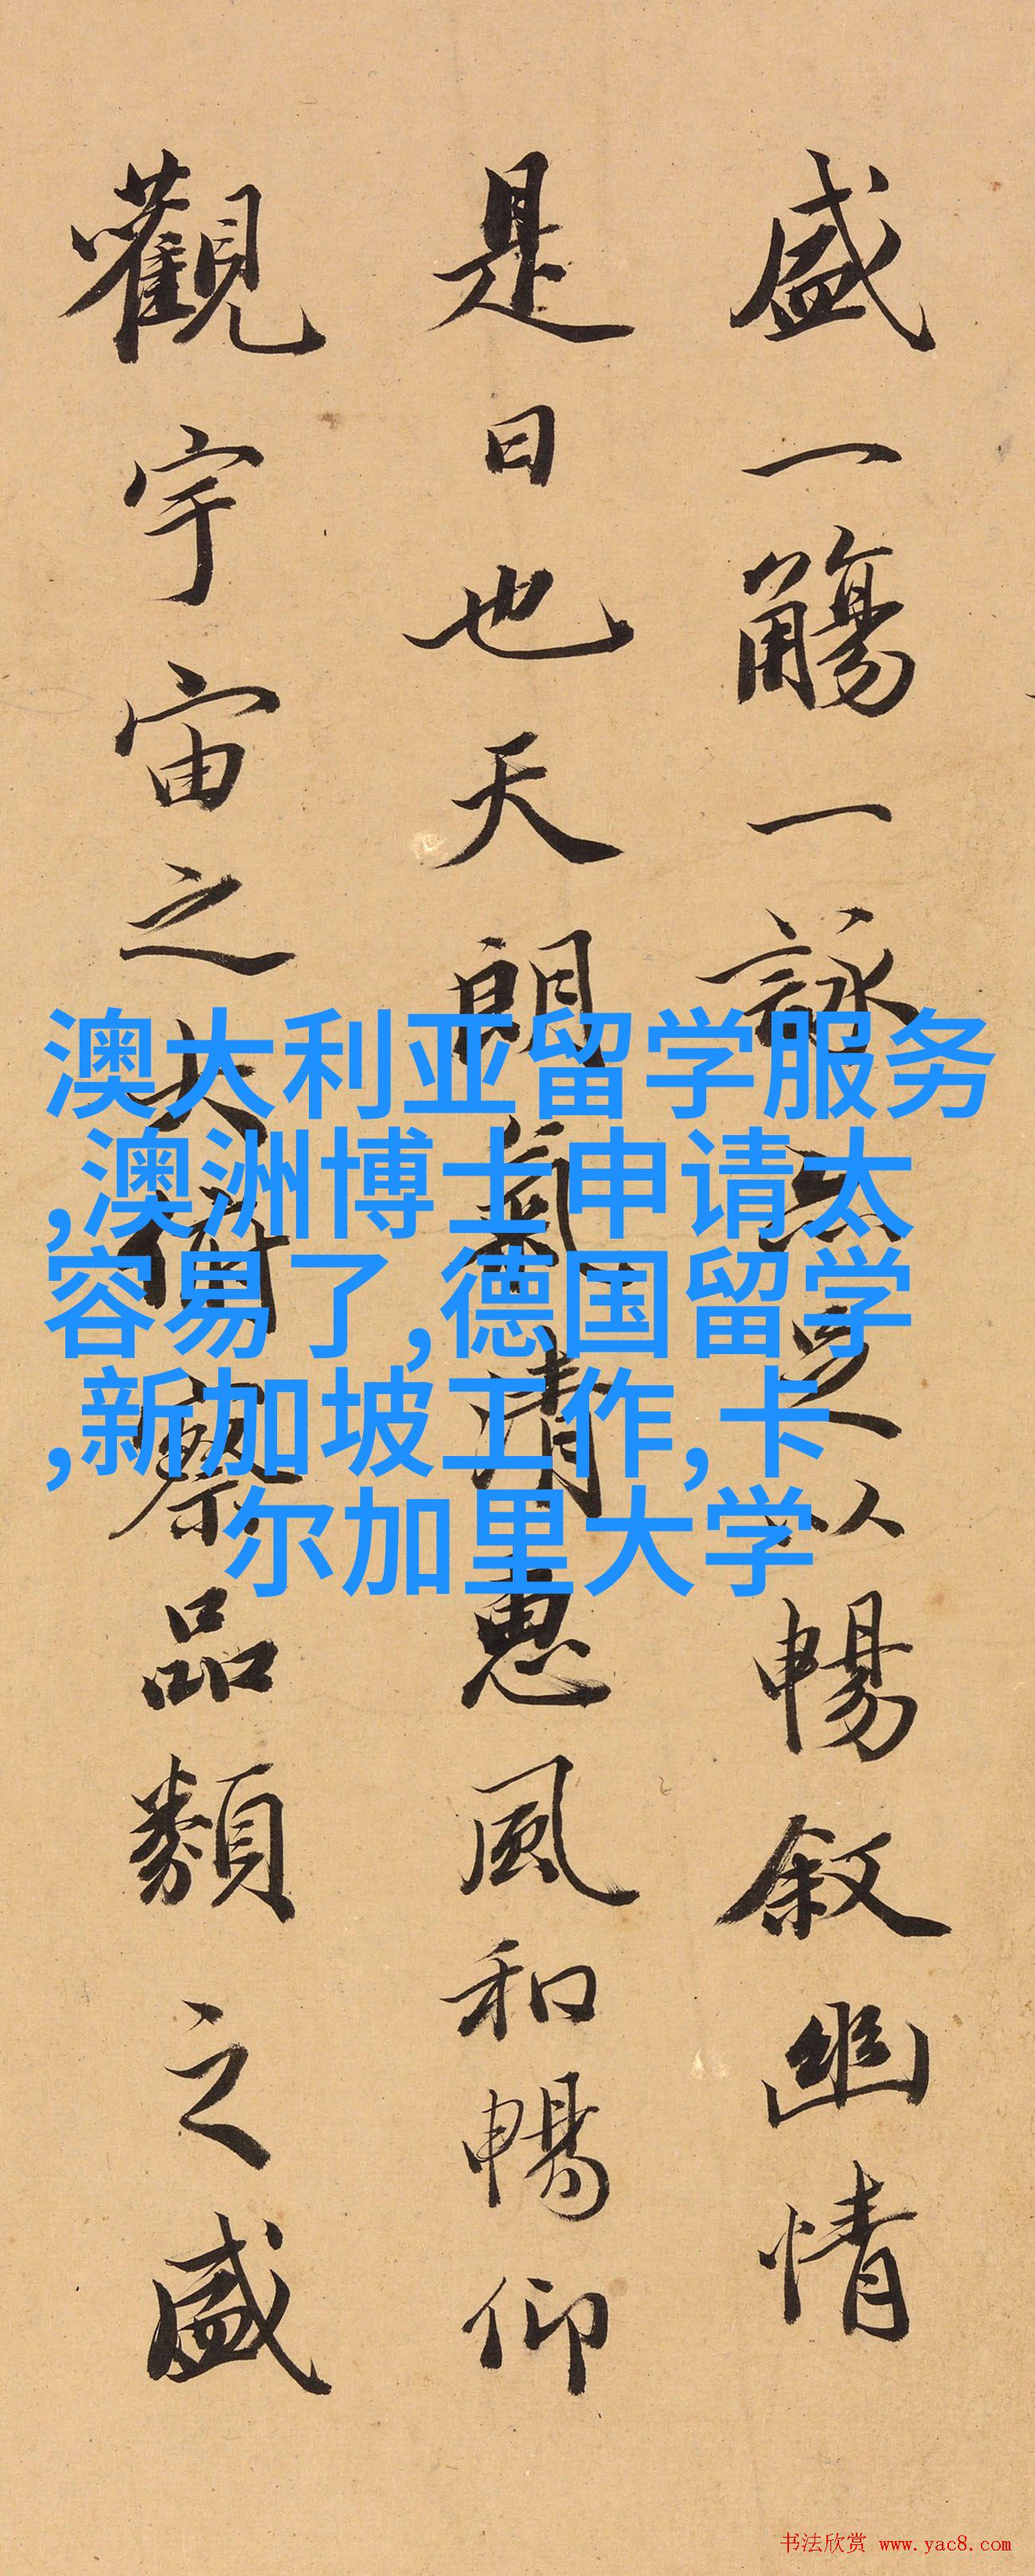 盛一觴一詠亦足以暢叙幽情
是日也天朗氣清惠風和暢仰
觀宇宙之大俯察品類之盛
澳大利亚留学服务
,澳洲博士申请太
容易了,德国留学
,新加坡工作,卡
尔加里大学
书法欣赏 www.yac8.com